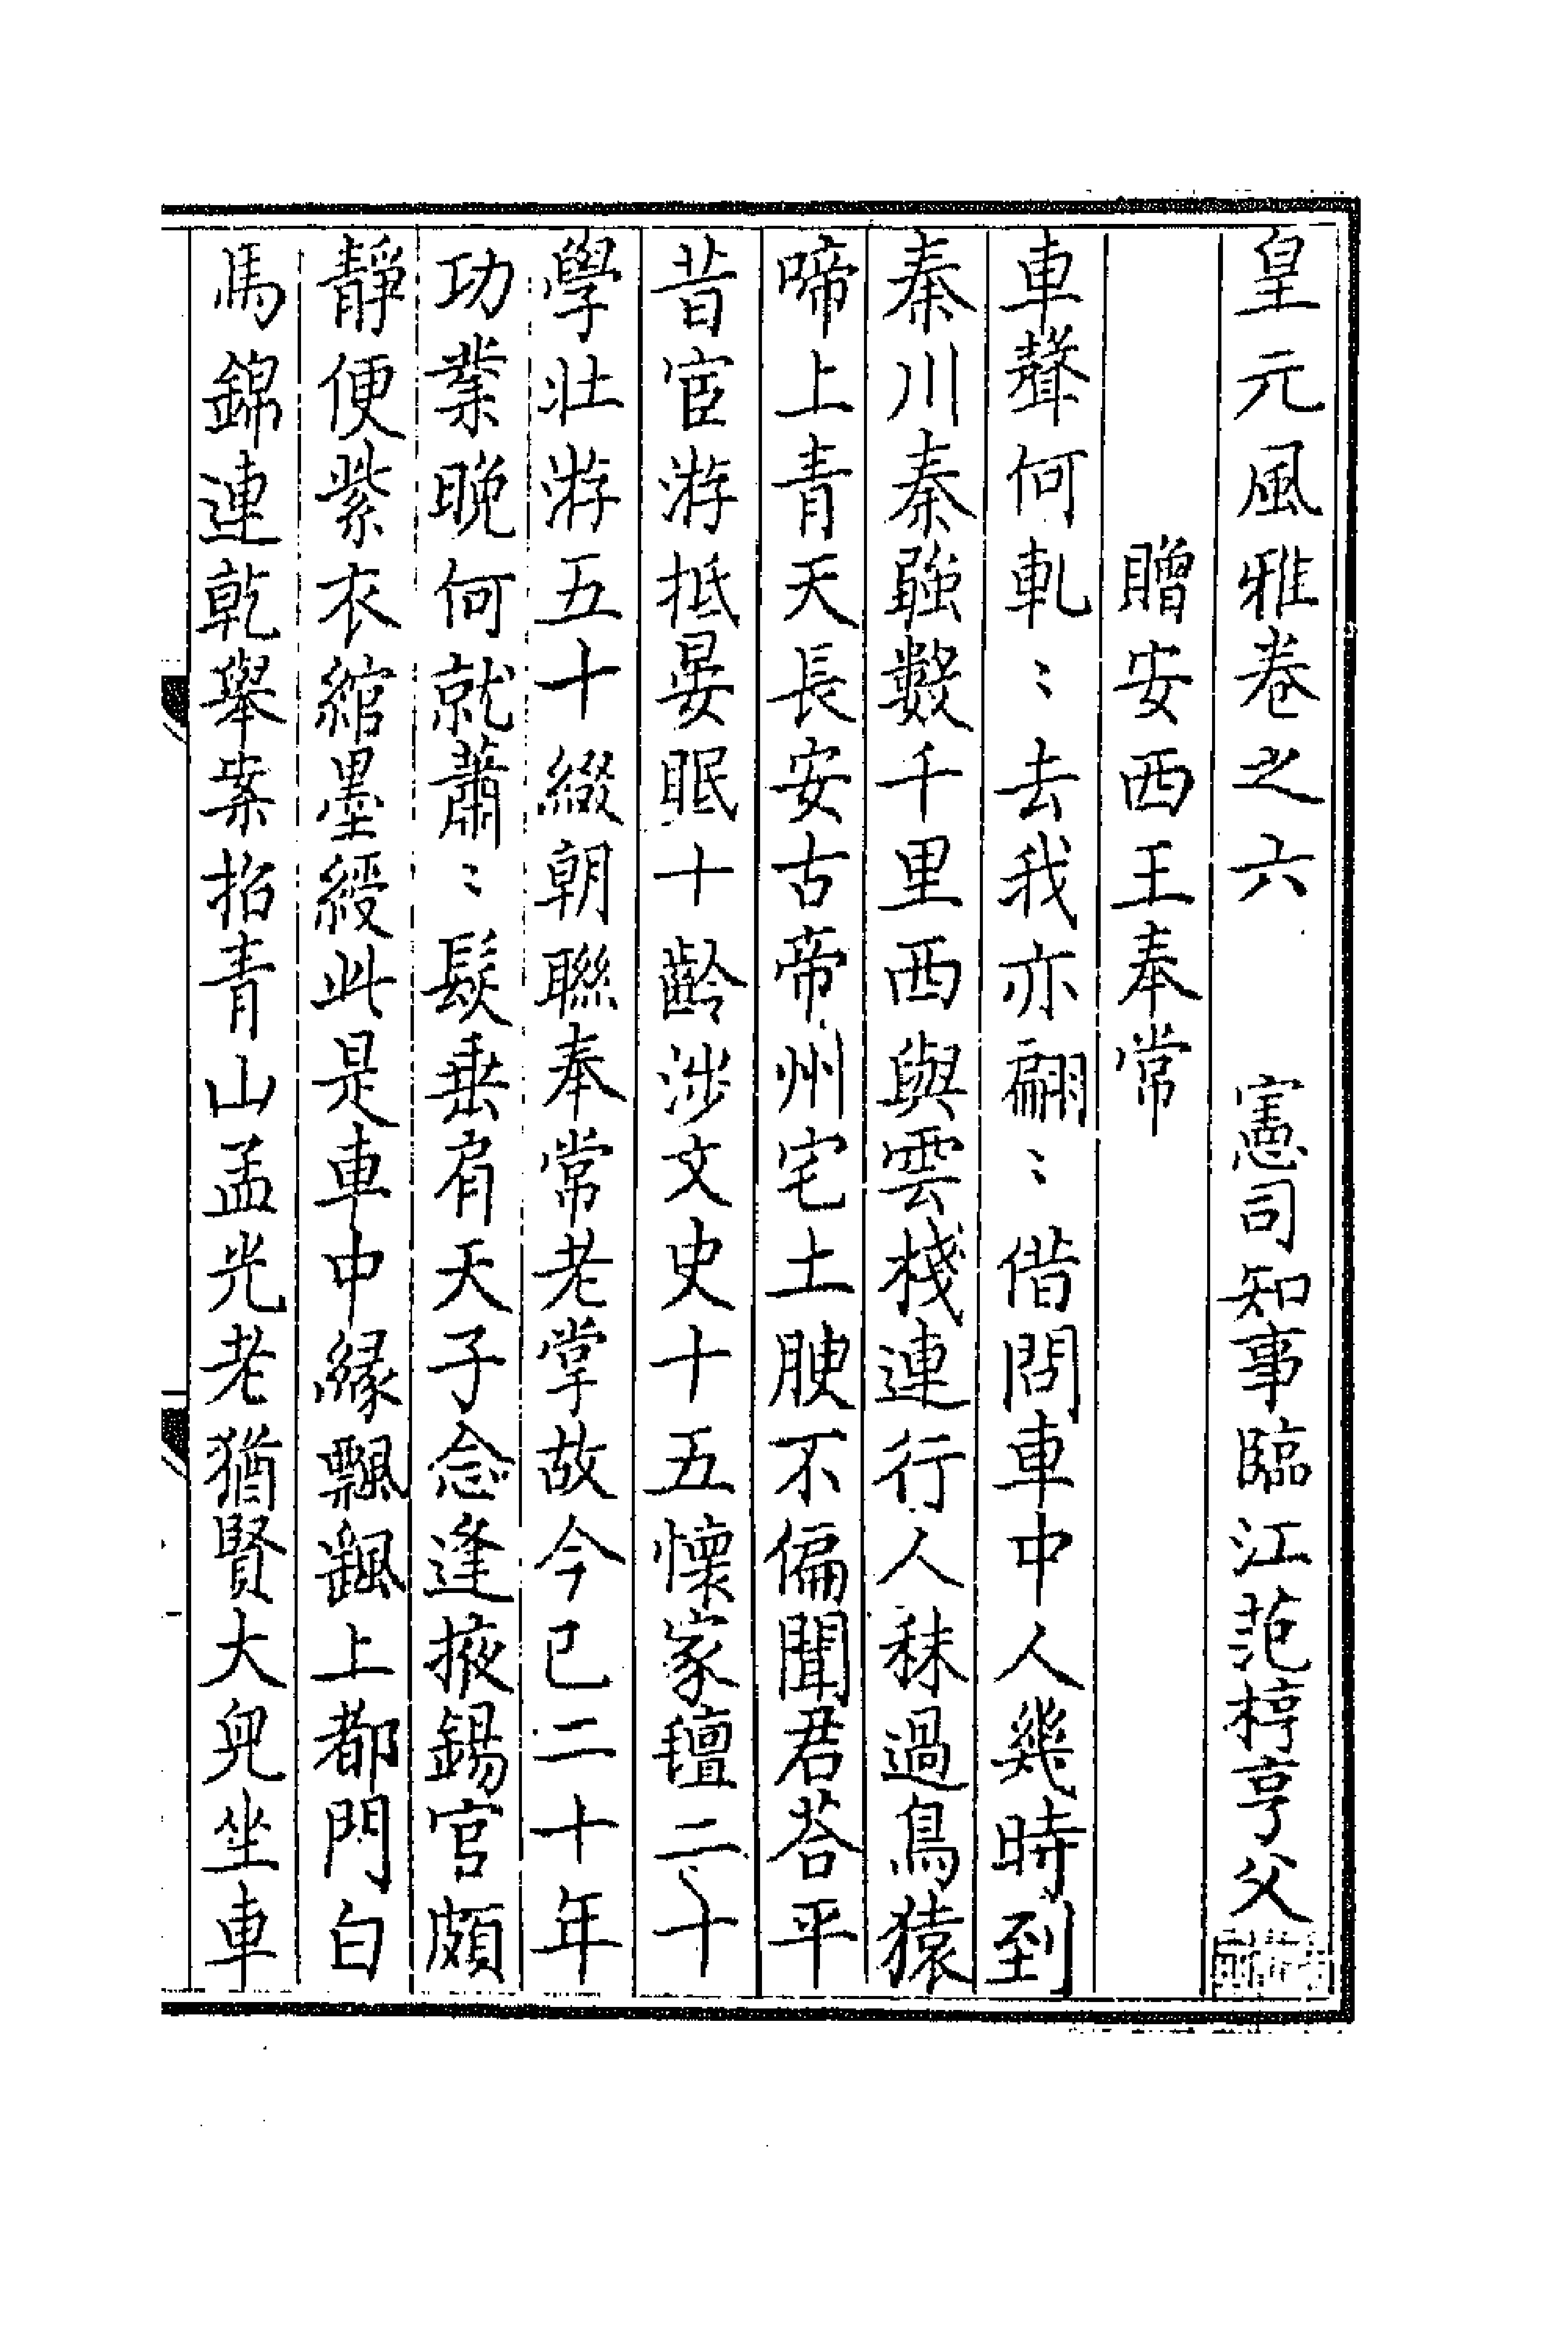 皇元風雅卷之六　憲司知事臨江范梈亨父
贈安西王奉常
車聲何軋〻去我亦翩〻借問車中人幾時到
秦川秦強數千里西與雲棧連行人秣過鳥猿
啼上青天長安古帝州宅土腴不偏聞君荅平
昔宦游抵晏眠十齡涉文史十五懷家氊二十
學壯游五十綴朝聯奉常老掌故今已二十年
功業晚何就蕭〻髮垂肩天子念逢掖錫官頗
靜便紫衣綰墨綬此是車中緣飄飄上都門白
馬錦連乾舉案招青山孟光老猶賢大兒坐車